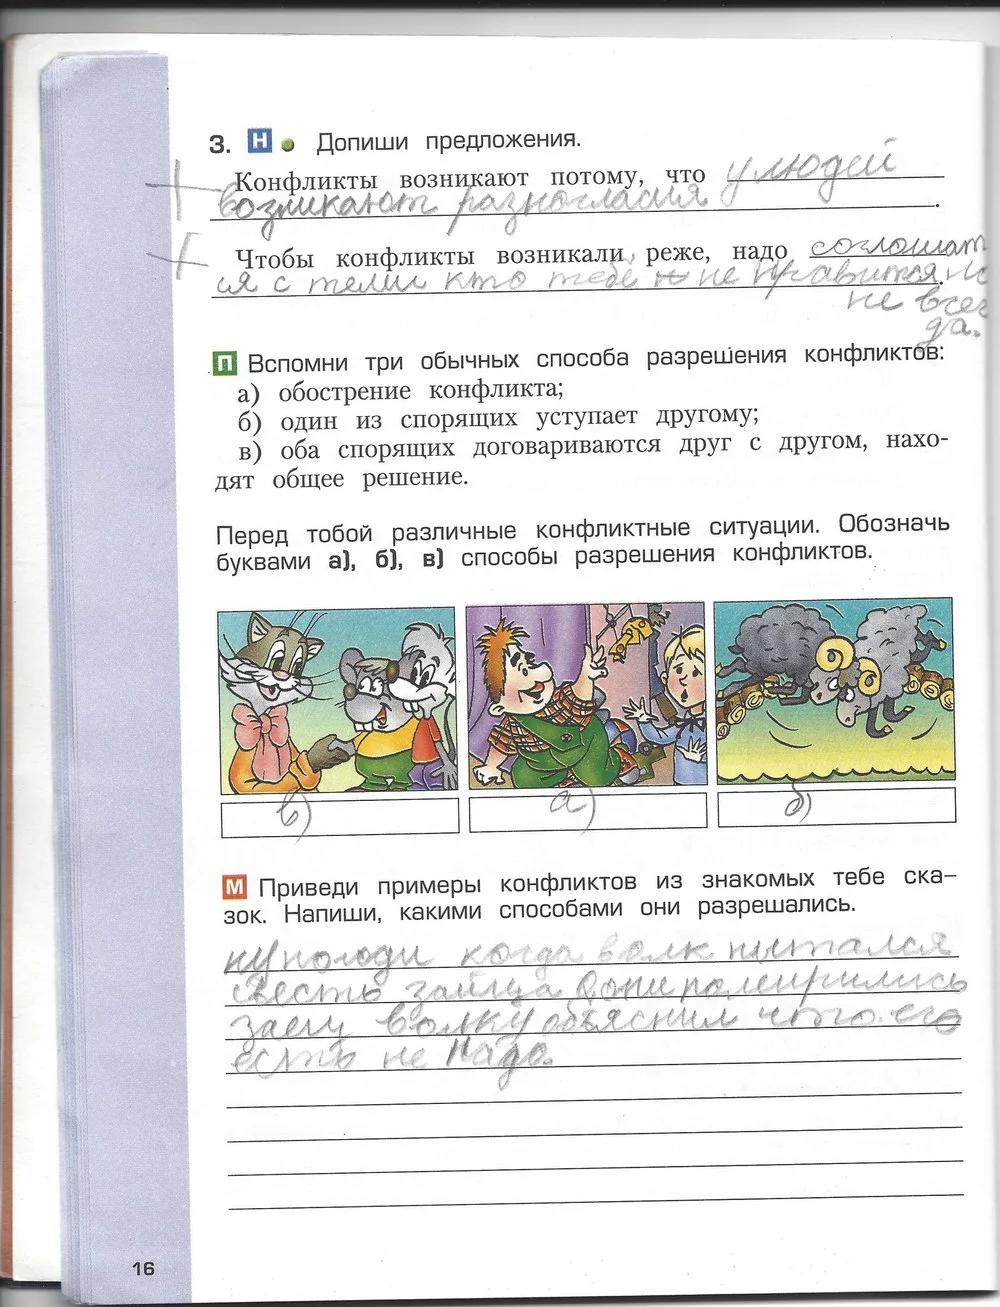 3. Н Допиши предложения.
Конфликты возникают потому, что у людей
возникают разногласия.
Чтобы конфликты возникали реже, надо соглошат
ся с теми кто тебе не нравится но
не всег
да.
П Вспомни три обычных способа разрешения конфликтов:
а) обострение конфликта;
б) один из спорящих уступает другому;
в) оба спорящих договариваются друг с другом, нахо-
дят общее решение.
Перед тобой различные конфликтные ситуации. Обозначь
буквами а), б), в) способы разрешения конфликтов.
в) а) б)
М Приведи примеры конфликтов из знакомых тебе ска-
зок. Напиши, какими способами они разрешались.
ну погоди когда волк пытался
сьесть зайца они помирились
заец волку объяснил что его
есть не надо.
16